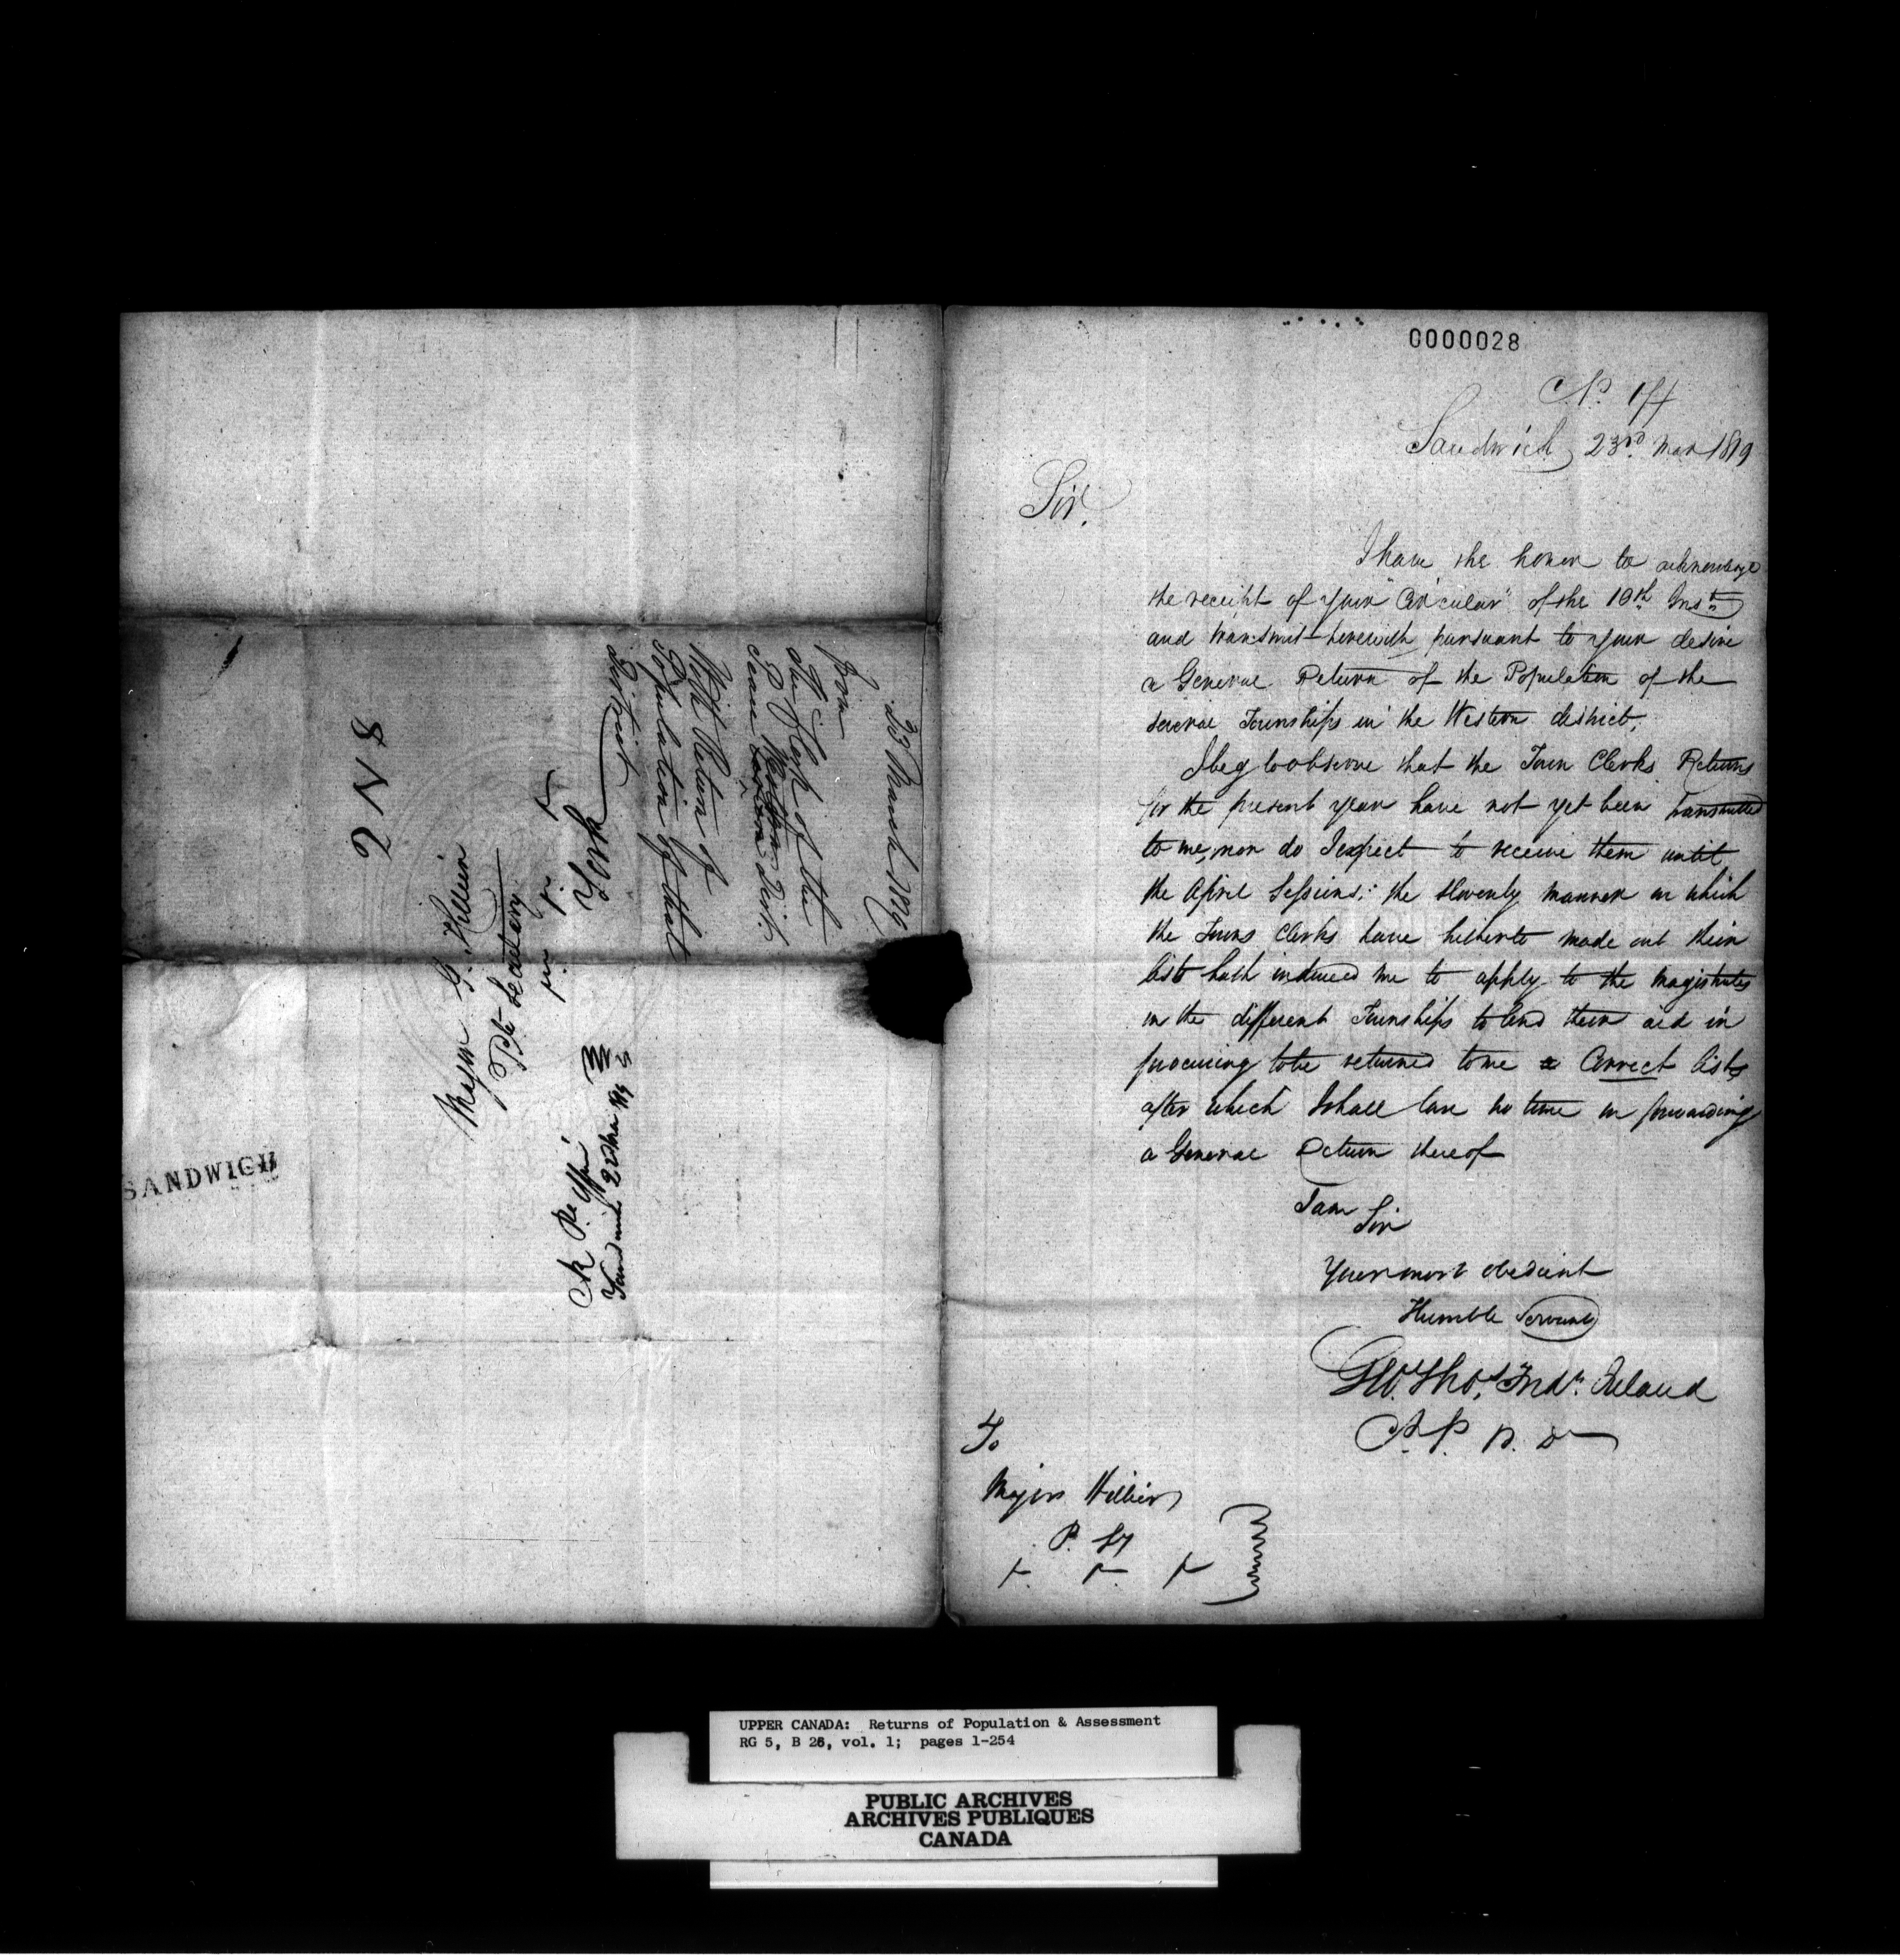 0000028
No. 17
Sandwich 23rd Mar 1819
Sir.
I have the honor to acknowledge
the receipt of your "Circular" of the 10th Inst
and transmit herewith pursuant to your desire
a General Return of the Population of the
several Townships in the Western district,
I beg to observe that the Town Clerks Returns
for the present year have not yet been transmitted
to me, nor do I expect to receive them until
the April Sessions: the slovenly manner in which
the Towns Clerks have hitherto made out their
lists hath induced me to apply to the Magistrates
in the different Townships to lend their aid in
procuring to be returned to me a Correct lists
after which I shall lose no time in forwarding
a General Return thereof
I am
Sir
Your most obedient
Humble Servant
Geo. Thos. Fredk. Ireland
To
Major Hillier
P. Sy
23 March 1819
From
The Clerk of the
Peace Western Distt.
With Return of
Population of that
District
2 N 8
Major G. Hillier
Pte Secretary
York
Sandwich 23 Mar 1819
SANDWICH
UPPER CANADA: Returns of Population & Assessment
RG 5, B 26, vol. 1; pages 1-254
PUBLIC ARCHIVES
ARCHIVES PUBLIQUES
CANADA